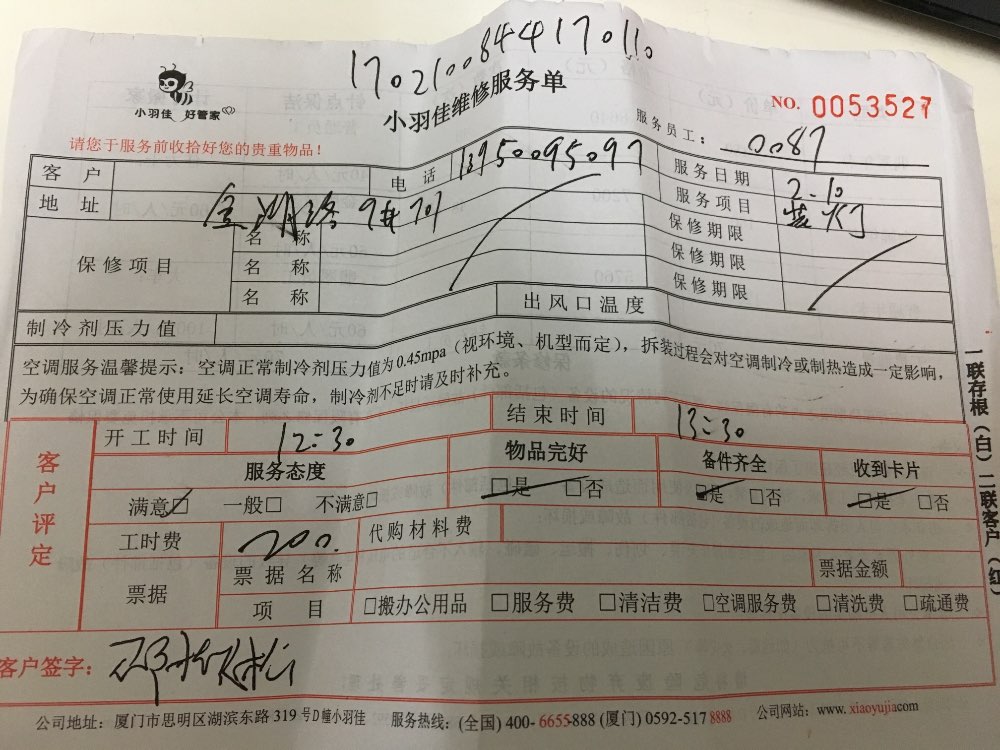 17021008441701110
小羽佳 好管家
小羽佳维修服务单
NO. 0053527
请您于服务前收拾好您的贵重物品！
服务员工： 0087
客户 电话 13950095097 服务日期 2-10
地址 金湖路9#701 服务项目 装灯
保修项目 名称 保修期限
名称 保修期限
名称 保修期限
制冷剂压力值 出风口温度
空调服务温馨提示：空调正常制冷剂压力值为0.45mpa（视环境、机型而定），拆装过程会对空调制冷或制热造成一定影响，
为确保空调正常使用延长空调寿命，制冷剂不足时请及时补充。
客户评定
开工时间 12:30 结束时间 13:30
服务态度 物品完好 备件齐全 收到卡片
满意☑ 一般□ 不满意□ ☑是 □否 ☑是 □否 ☑是 □否
工时费 200 代购材料费
票据 票据名称 票据金额
项目 □搬办公用品 □服务费 □清洁费 □空调服务费 □清洗费 □疏通费
客户签字：
公司地址：厦门市思明区湖滨东路 319 号D幢小羽佳 服务热线：(全国) 400-6655-888 (厦门) 0592-517 8888 公司网站：www.xiaoyujia.com
一联存根（白）二联客户（红）